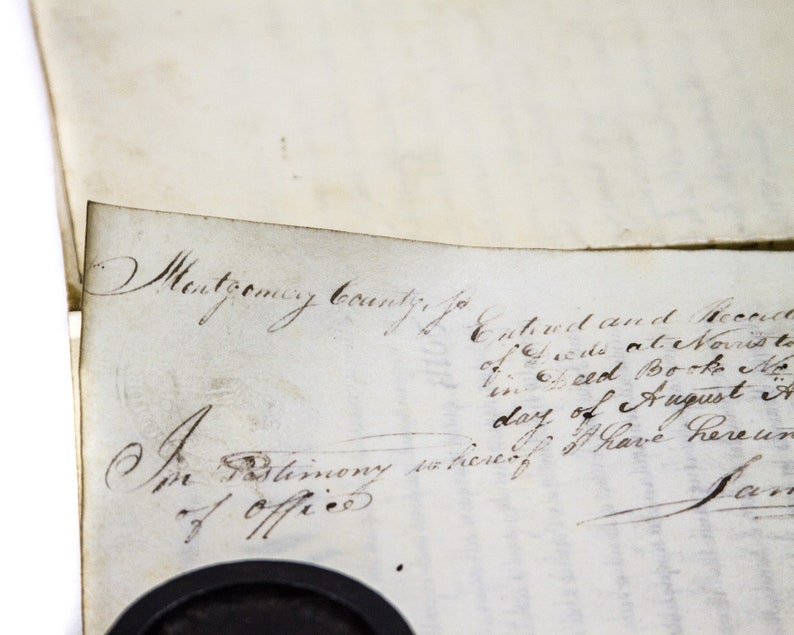 Montgomery County, ss
Entired and Recod
of Deeds at Norristo
in Deed Book No
day of August A
In Testimony whereof I have hereun
of Office
Jam